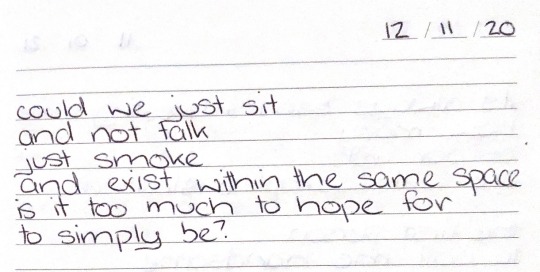 12/11/20
could we just sit
and not talk
just smoke
and exist within the same space
is it too much to hope for
to simply be?